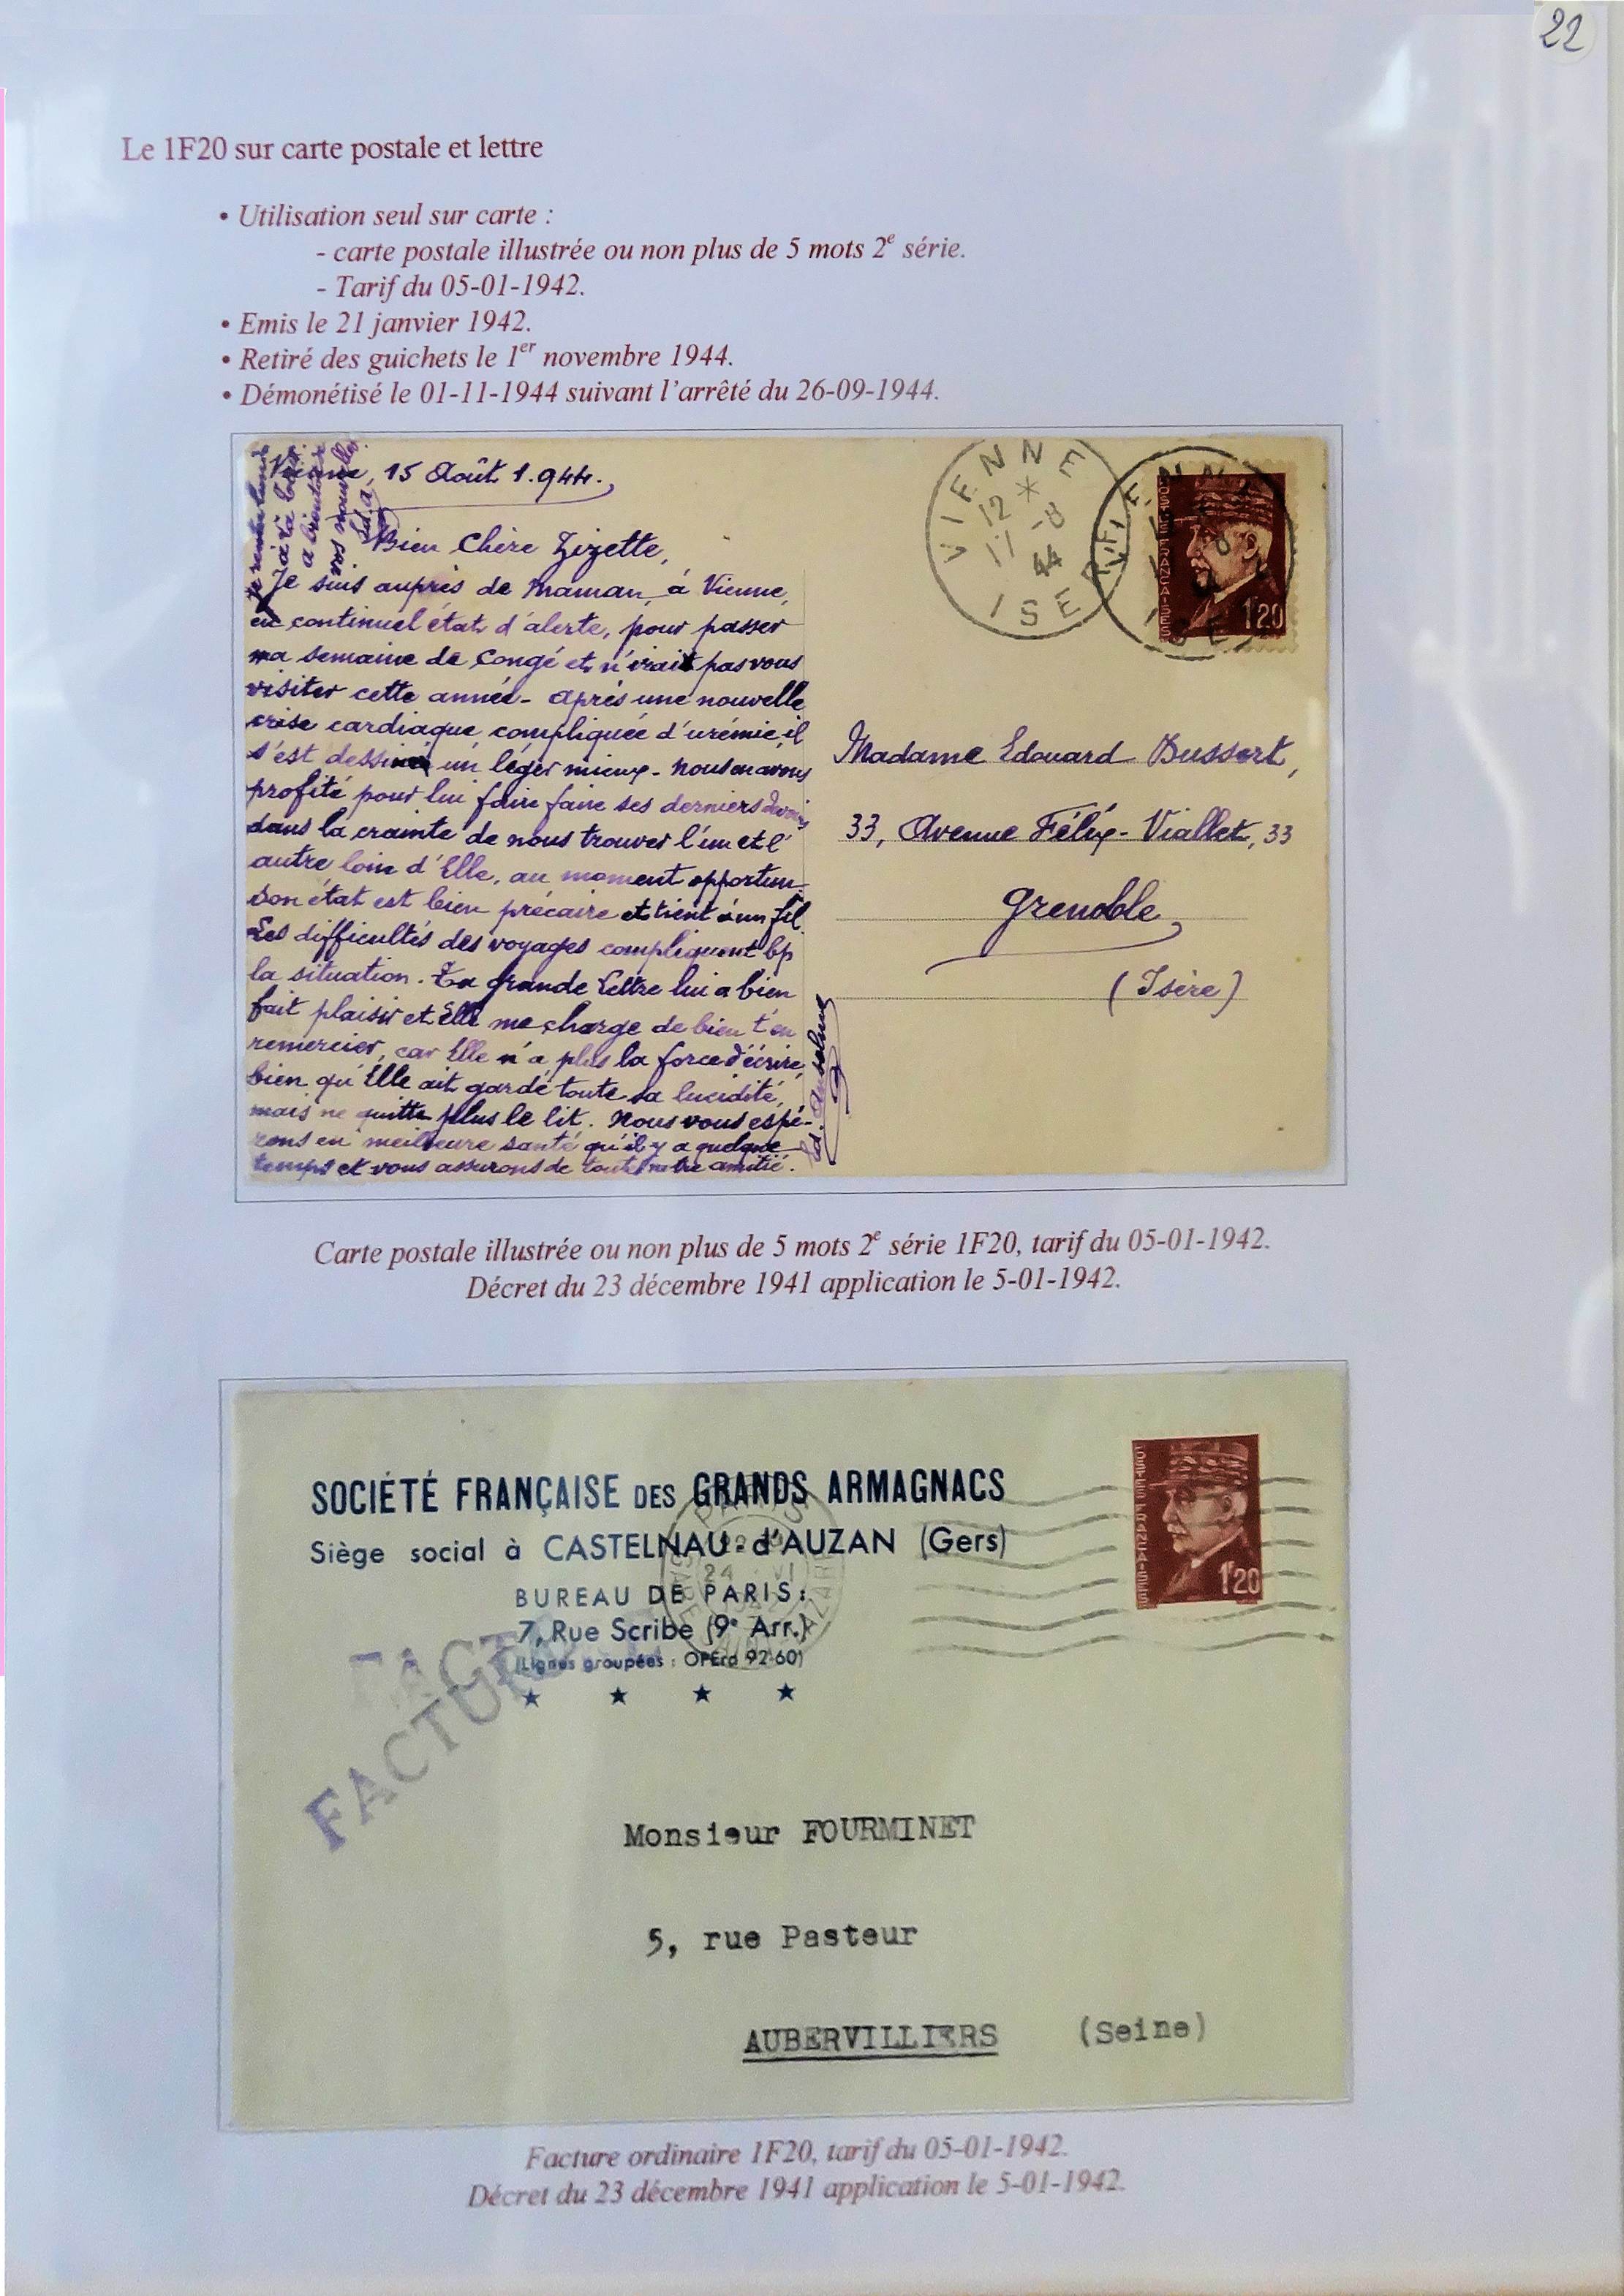 22
Le 1F20 sur carte postale et lettre
• Utilisation seul sur carte :
- carte postale illustrée ou non plus de 5 mots 2e série.
- Tarif du 05-01-1942.
• Emis le 21 janvier 1942.
• Retiré des guichets le 1er novembre 1944.
• Démonétisé le 01-11-1944 suivant l'arrêté du 26-09-1944.
Vienne, 15 Août 1.944.,
Bien Chère Zizette,
Je suis auprès de Maman, à Vienne,
en continuel état d'alerte, pour passer
ma semaine de Congé et n'irait pas vous
visiter cette année - après une nouvelle
crise cardiaque, compliquée d'urémie, il
s'est dessiné un léger mieux - nous en avons
profité pour lui faire faire ses derniers devoirs
dans la crainte de nous trouver l'un et l'
autre, loin d'Elle, au moment opportun.
Son état est bien précaire et tient à un fil.
Les difficultés des voyages compliquent bp
la situation. Ta grande Lettre lui a bien
fait plaisir et Elle me charge de bien t'en
remercier, car Elle n'a plus la force d'écrire,
bien qu'Elle ait gardé toute sa lucidité,
mais ne quitte plus le lit. Nous vous espé-
rons en meilleure santé qu'il y a quelque
temps et vous assurons de toute notre amitié.
vos nouvelles
VIENNE
12 *
17 -8
44
ISERE
VIENNE
ISERE
POSTES FRANÇAISES
1F20
Madame Edouard Bussert,
33, Avenue Félix-Viallet, 33
Grenoble
(Isère)
Carte postale illustrée ou non plus de 5 mots 2e série 1F20, tarif du 05-01-1942.
Décret du 23 décembre 1941 application le 5-01-1942.
SOCIÉTÉ FRANÇAISE DES GRANDS ARMAGNACS
Siège social à CASTELNAU-d'AUZAN (Gers)
BUREAU DE PARIS :
7, Rue Scribe (9e Arr.)
(Lignes groupées : OPEra 92-60)
★ ★ ★ ★
FACTURE
PARIS
24 VI
GARE
POSTES FRANÇAISES
1F20
Monsieur FOURMINET
5, rue Pasteur
AUBERVILLIERS (Seine)
Facture ordinaire 1F20, tarif du 05-01-1942.
Décret du 23 décembre 1941 application le 5-01-1942.